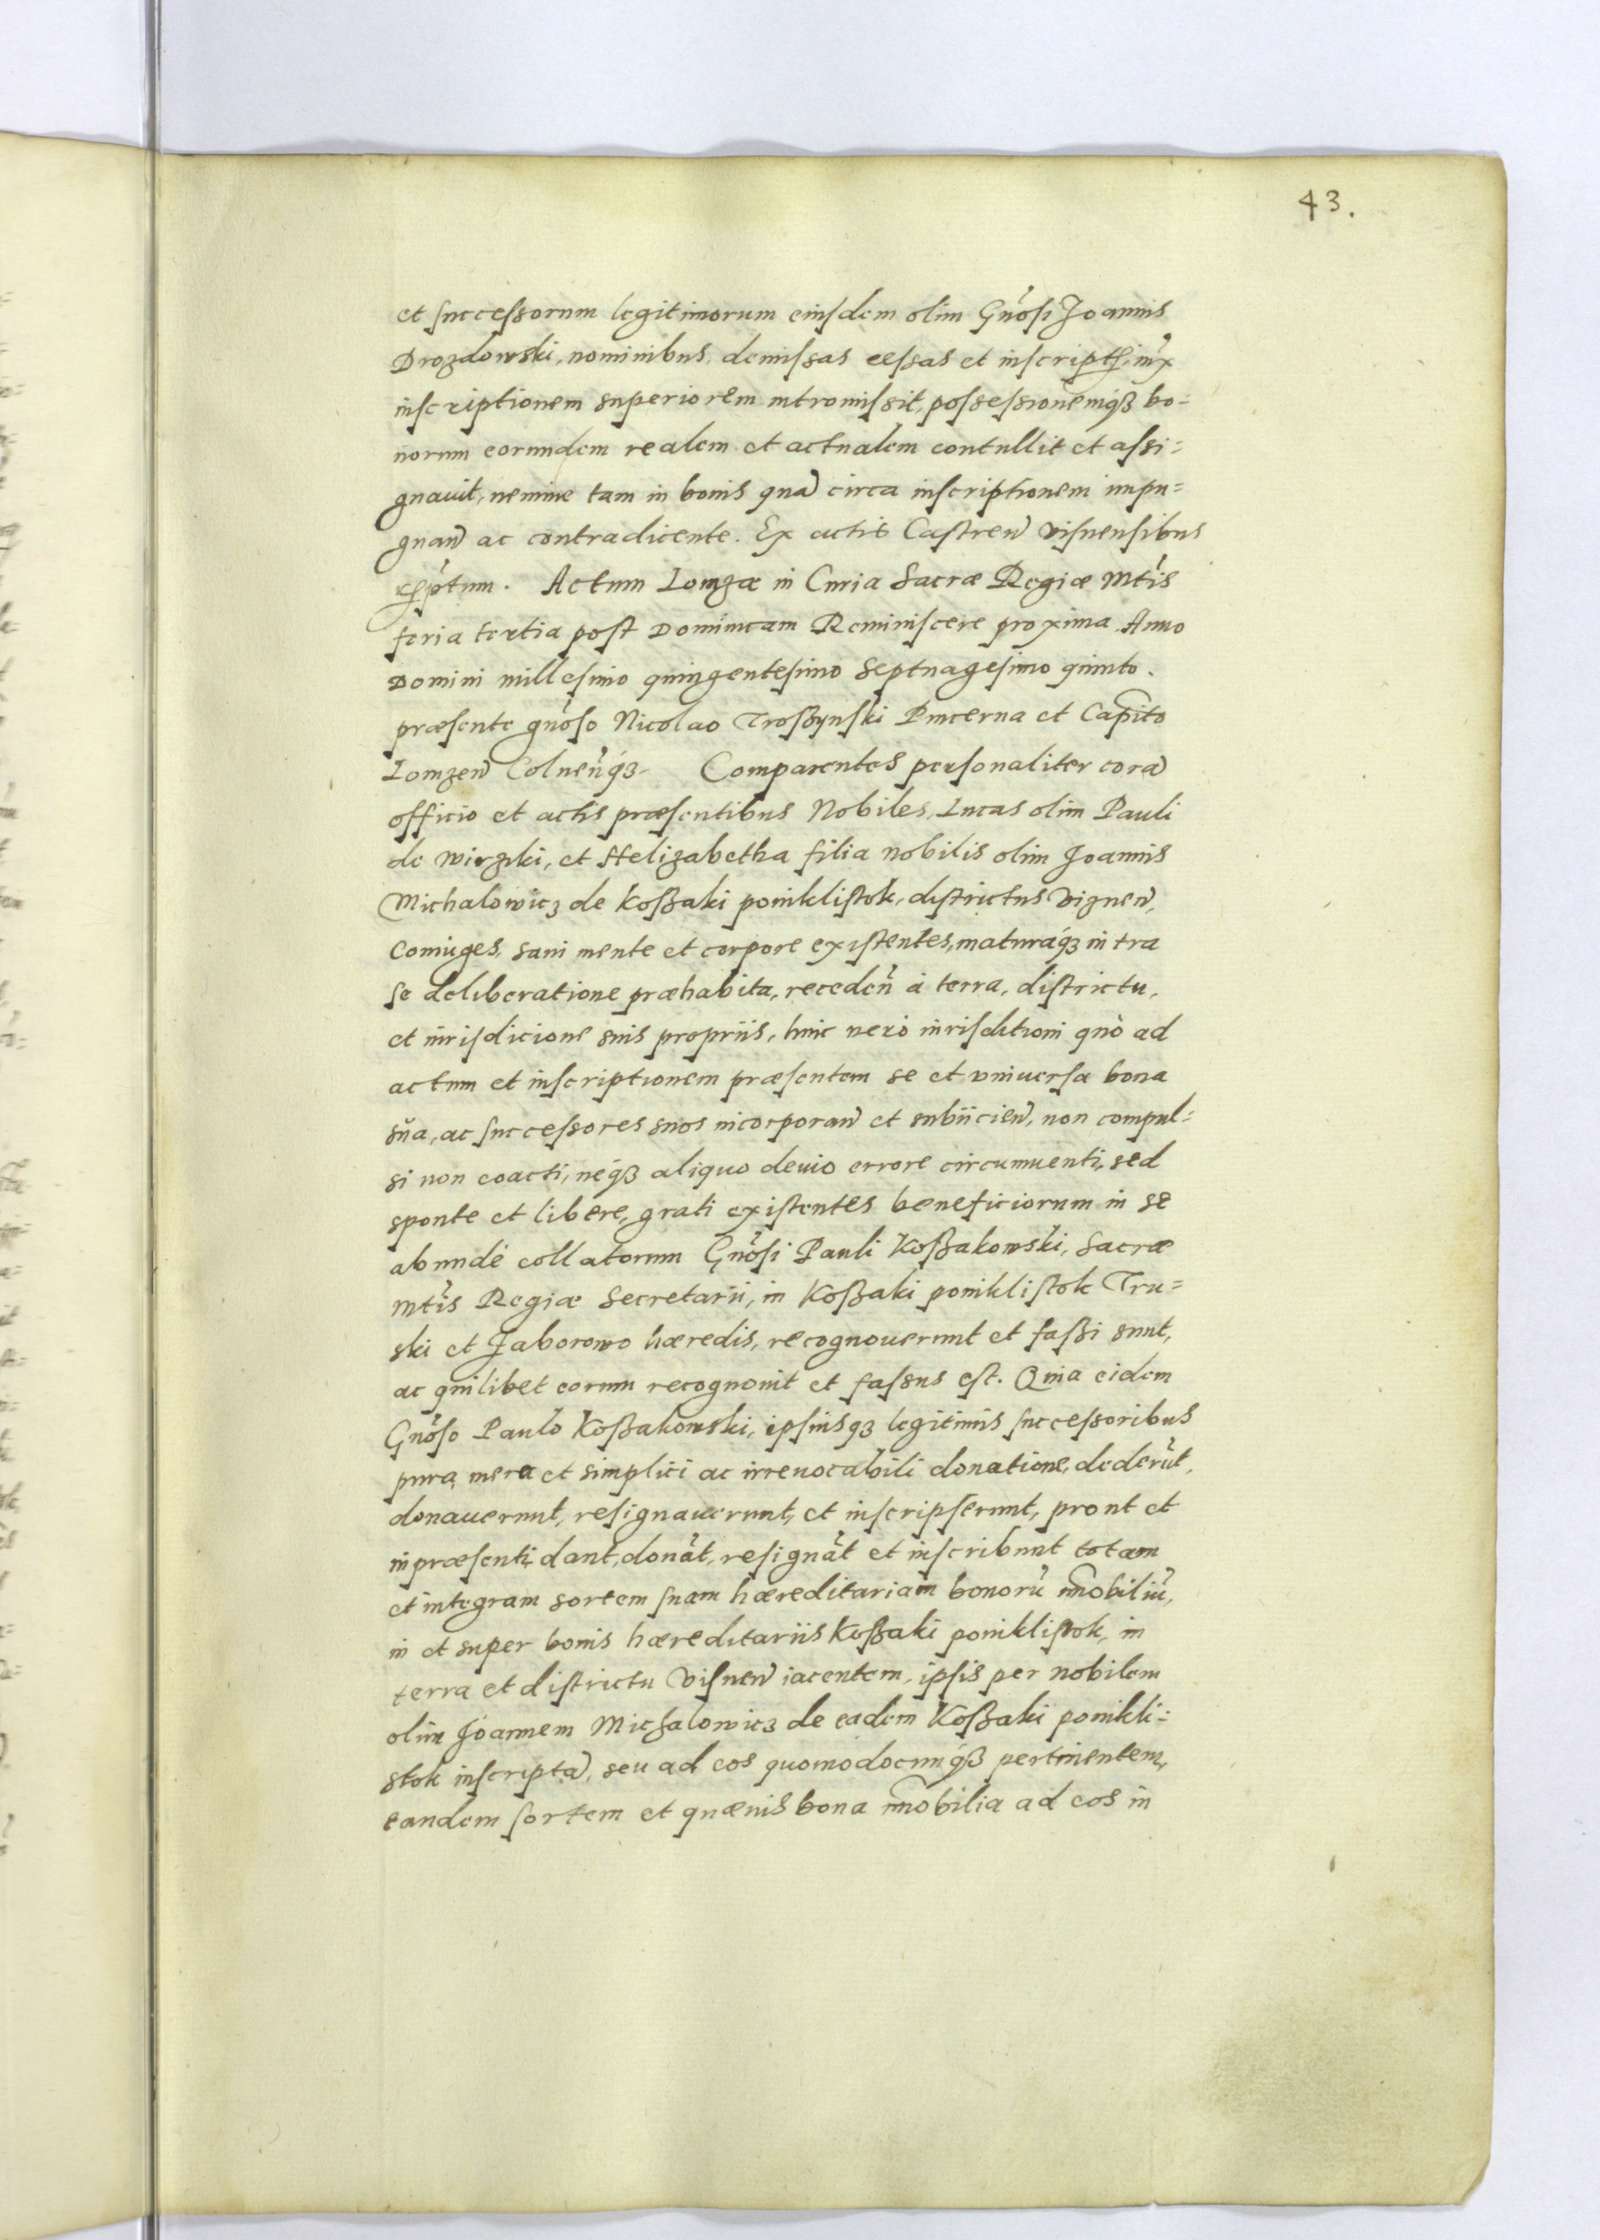 43.
et successorum legitimorum eiusdem olim Gnosi Joannis
Drozdowski, nominibus, demissas cessas et inscript iux
inscriptionem superiorem intromissit, possessionemqz bo-
norum eorundem realem et actualem contullit et assi-
gnauit, nemine tam in bonis qua circa inscriptionem impu-
gnan ac contradicente. Ex actis Castren visnensibus
rptum. Actum Lomzæ in Curia Sacræ Regiæ Mtis
feria tertia post Dominicam Reminiscere proxima Anno
Domini millesimo quingentesimo septuagesimo quinto.
præsente gnoso Nicolao Troszynski Pincerna et Capito
Lomzen Colnenqz. Comparentes personaliter cora
officio et actis præsentibus Nobiles, Lucas olim Pauli
de Wirzki, et Helizabetha filia nobilis olim Joannis
Michalowicz de Koßaki ponikłistok, districtus Viznen,
Coniuges, sani mente et corpore existentes, maturaqz intra
se deliberatione præhabita, recedeñ à terra, districtu,
et iurisdicione suis propriis, huic vero iurisditioni quò ad
actum et inscriptionem præsentem se et vniuersa bona
sua, ac successores suos incorporan et subiicien, non compul-
si non coacti, neqz aliquo deuio errore circumuenti, sed
sponte et libere, grati existentes beneficiorum in se
abundè collatorum Gnosi Pauli Koßakowski, Sacræ
Mtis Regiæ Secretarii, in Koßaki poniklistok Tru-
ski et Jaborowo hæredis, recognouerunt et faßi sunt,
ac quilibet eorum recognouit et fassus est. Quia eidem
Gnoso Paulo Koßakowski, ipsiusqz legitimis successoribus
pura, mera et simplici ac irreuocabili donatione, dederūt,
donauerunt, resignauerunt, et inscripserunt, prout et
inpræsenti, dant, donāt, resignāt et inscribunt totam
et integram sortem suam hæreditariam bonorū immobiliū,
in et super bonis hæreditariis Koßaki poniklistok, in
terra et districtu Visnen iacentem, ipsis per nobilem
olim Joannem Michalowicz de eadem Koßaki ponikli-
stok inscripta, seu ad eos quomodocunqz pertinentem,
eandem sortem et quæuis bona immobilia ad eos in